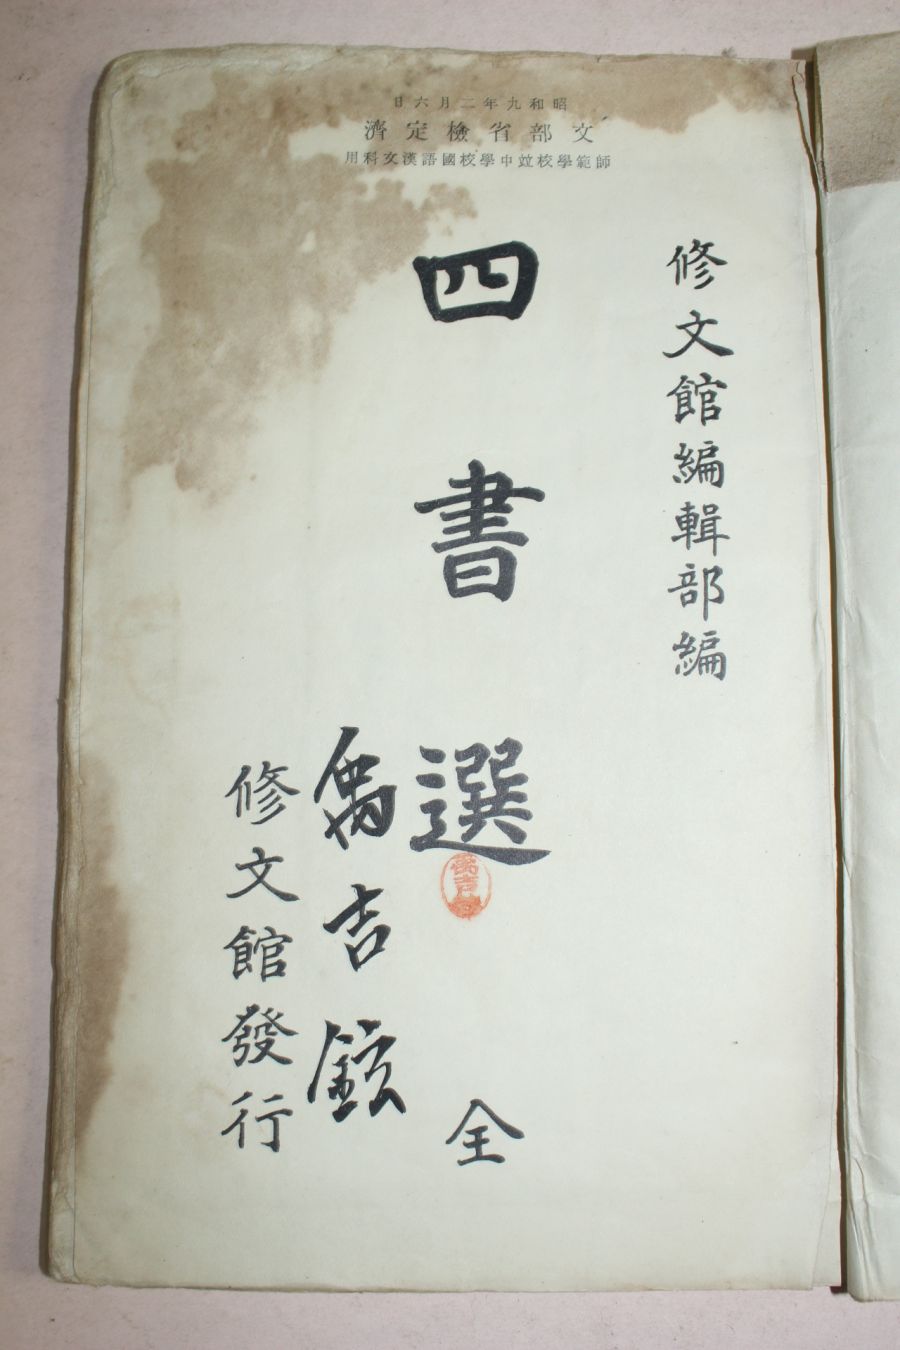 昭和九年二月六日
文部省檢定濟
師範學校竝中學校國語漢文科用
修文館編輯部編
四書選 全
禹吉鉉
修文館發行